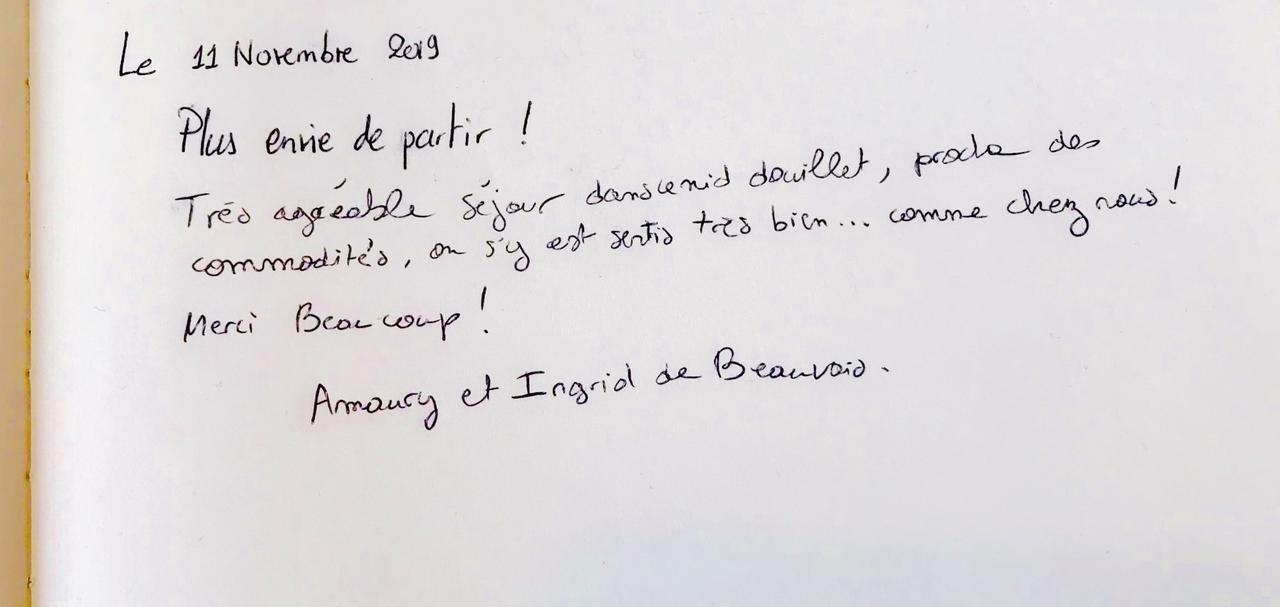 Le 11 Novembre 2019
Plus envie de partir !
Très agréable séjour dans ce nid douillet, proche des
commodités, on s'y est sentis très bien... comme chez nous !
Merci Beaucoup !
Amaury et Ingrid de Beauvais.